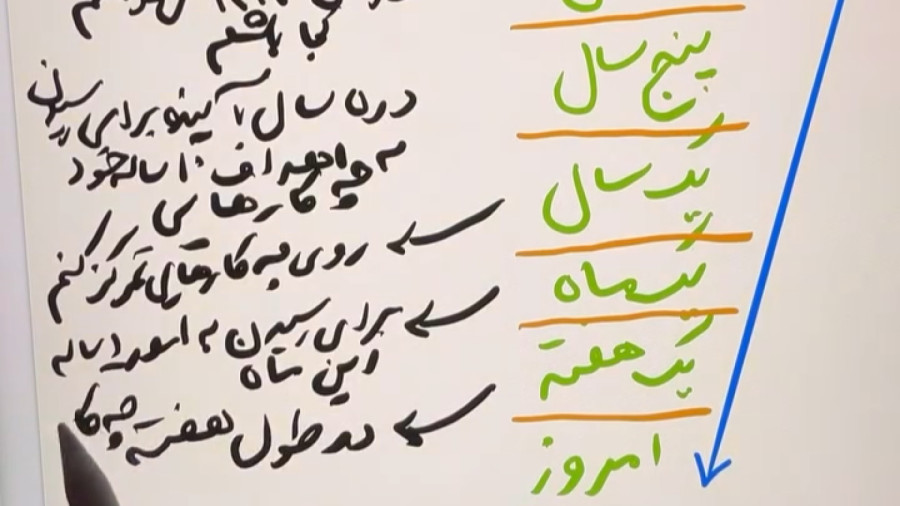 کجا باشم
پنج سال
در ۵ سال آینده برای رسیدن
به اهداف ۱۰ ساله خود
یک سال
چه کارهایی
روی چه کارهایی تمرکز کنم
یک ماه
برای رسیدن به اهداف ۱ ساله
این ماه
یک هفته
در طول هفته چه کا
امروز